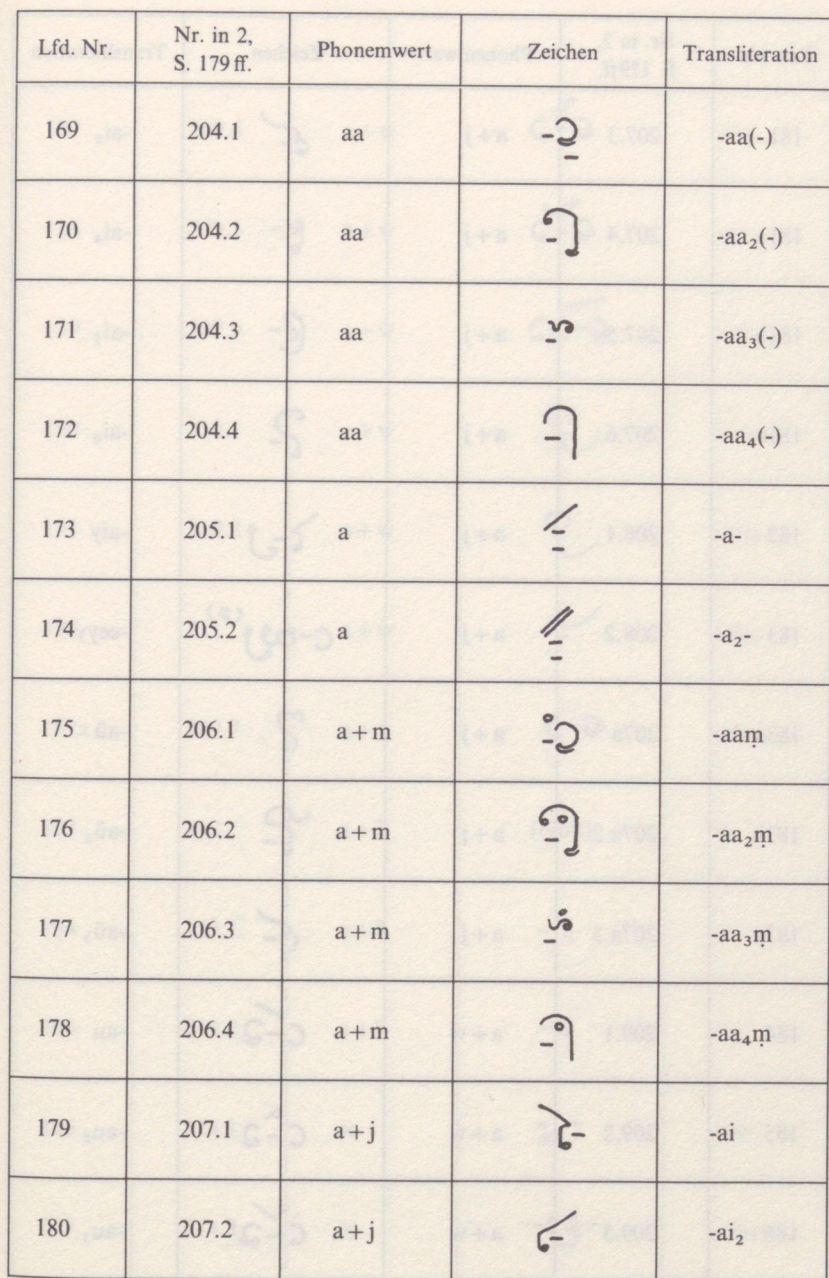 Lfd. Nr. Nr. in 2, S. 179 ff. Phonemwert Zeichen Transliteration
169 204.1 aa -aa(-)
170 204.2 aa -aa₂(-)
171 204.3 aa -aa₃(-)
172 204.4 aa -aa₄(-)
173 205.1 a -a-
174 205.2 a -a₂-
175 206.1 a+m -aaṃ
176 206.2 a+m -aa₂ṃ
177 206.3 a+m -aa₃ṃ
178 206.4 a+m -aa₄ṃ
179 207.1 a+j -ai
180 207.2 a+j -ai₂